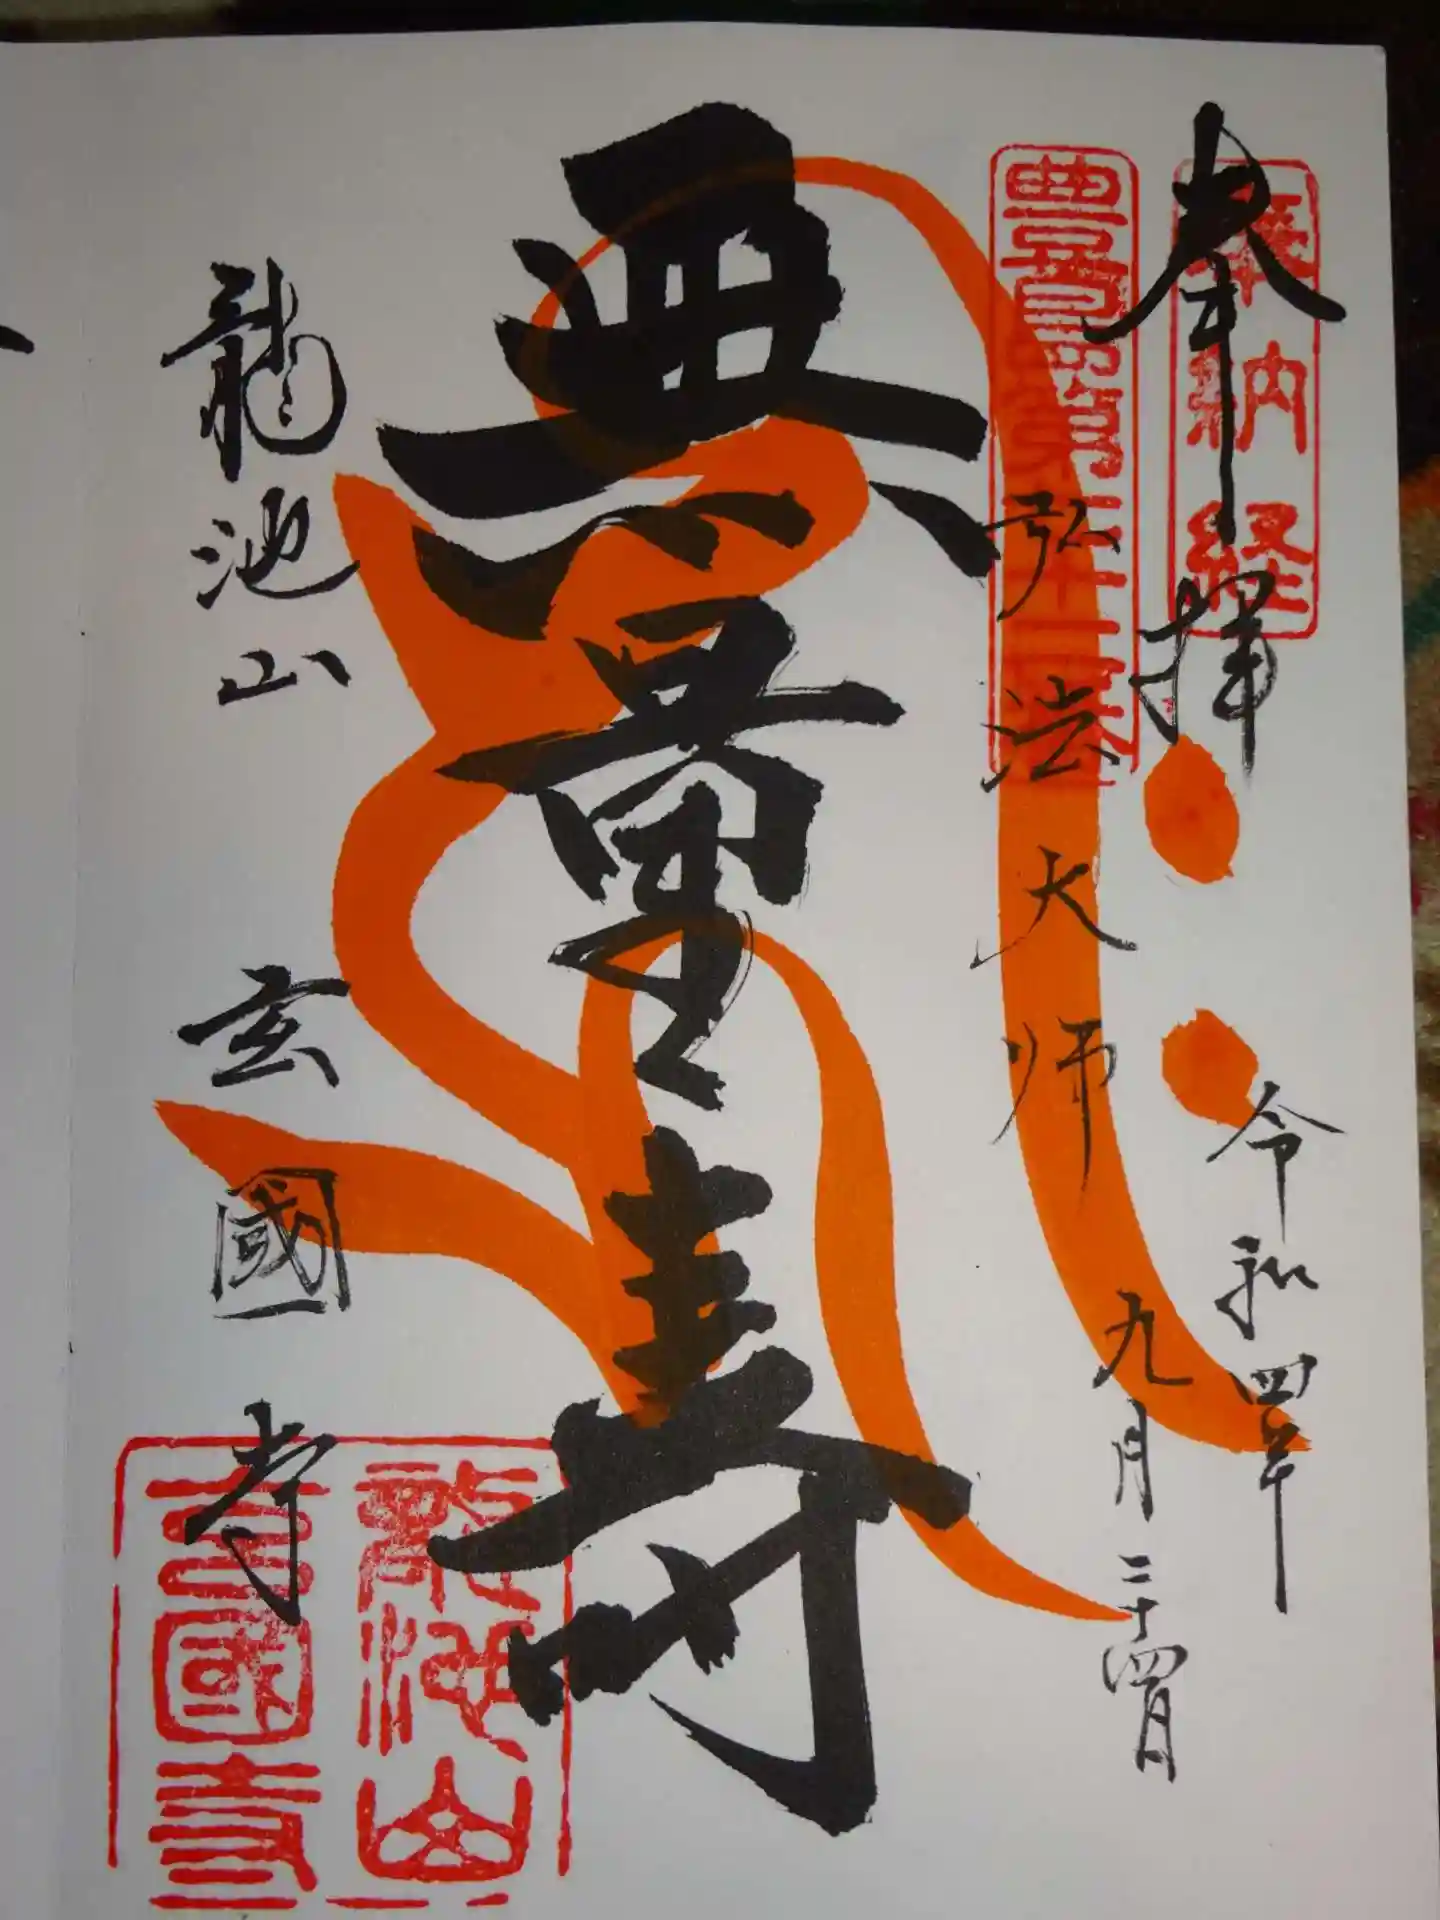 奉拝
奉納経
令和四年
九月二十四日
弘法大師
無量寿
龍池山
玄國寺
龍池山
玄國寺